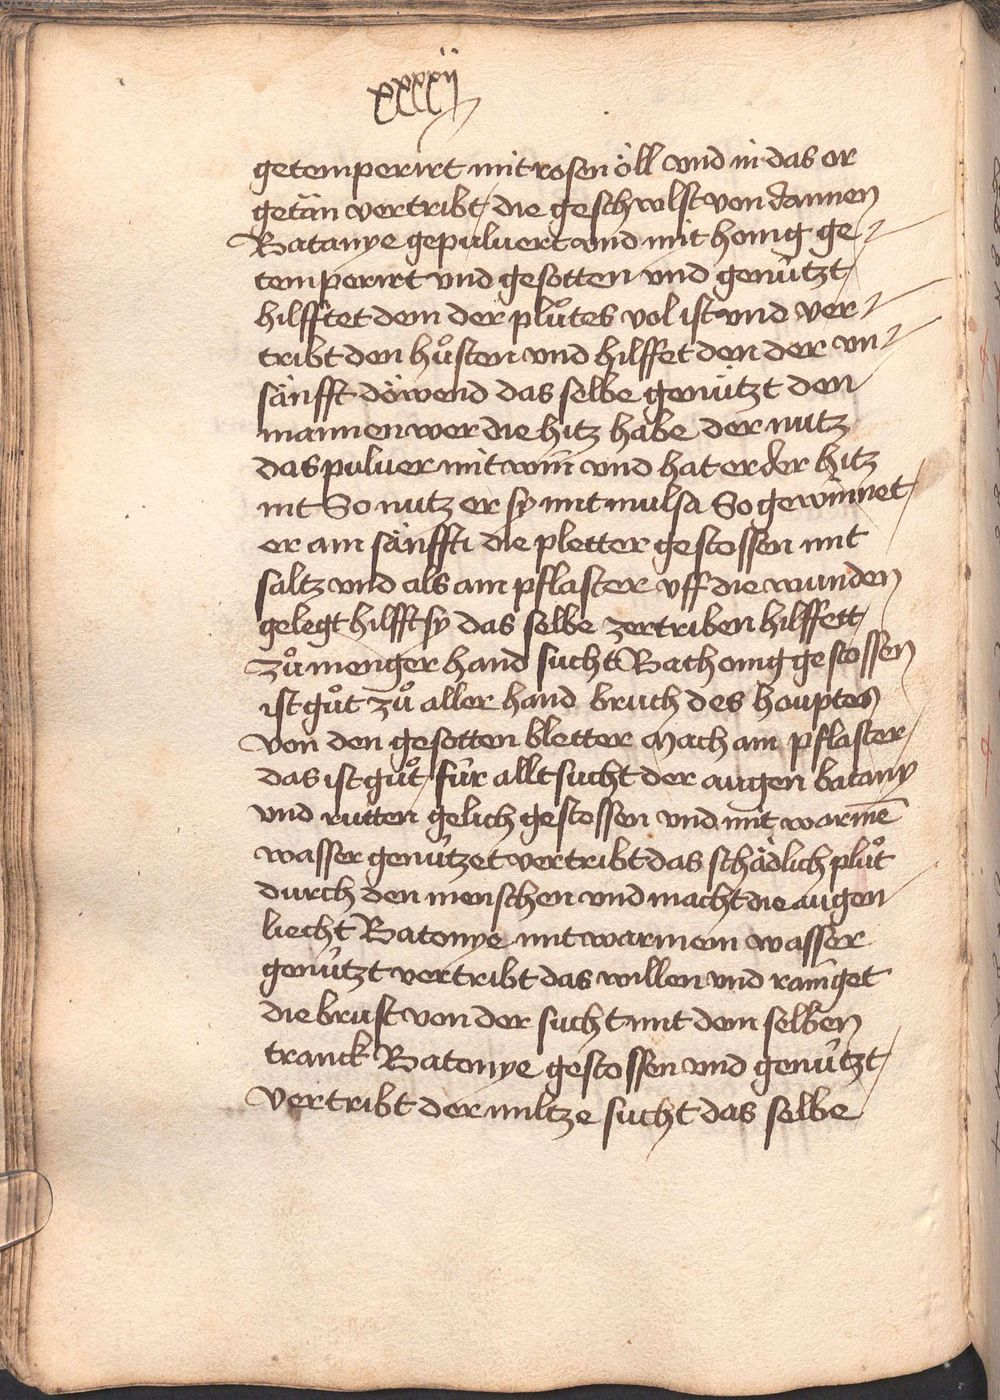 xxxxij
getemperirt mit rosen öll vnd in das or
getän vertribt die geschwlst von dannen
Batanye gepuluert vnd mit honig ge
temperirt vnd gesotten vnd genützt
hilfftet dem der plůtes vol ist vnd ver
tribt den hůsten vnd hilffet den der vn
sänfft döwend das selbe genützt den
mannen wer die hitz habe der nutz
das puluer mit win vnd hat er der hitz
nit So nutz er sy mit mulsa So gewinnet
er ain sänffti die pletter gestossen mit
saltz vnd als ain pflaster vff die wunden
gelegt hilfft sy das selbe zertriben hilffett
zů menger hand sucht Bathonig gestossen
ist gůt zů aller hand bruch des houptes
von den gesotten bletter mach ain pflaster
das ist gůt für allt sucht der augen batany
vnd rutten gelich gestossen vnd mit warmē
wasser genützet vertribt das schädlich plůt
durch den menschen vnd macht die augen
liecht Batonye mit warmem wasser
genützt vertribt das willen vnd rainget
die brust von der sucht mit dem selben
tranck Batonye gestossen vnd genützt
vertribt der miltze sucht das selbe